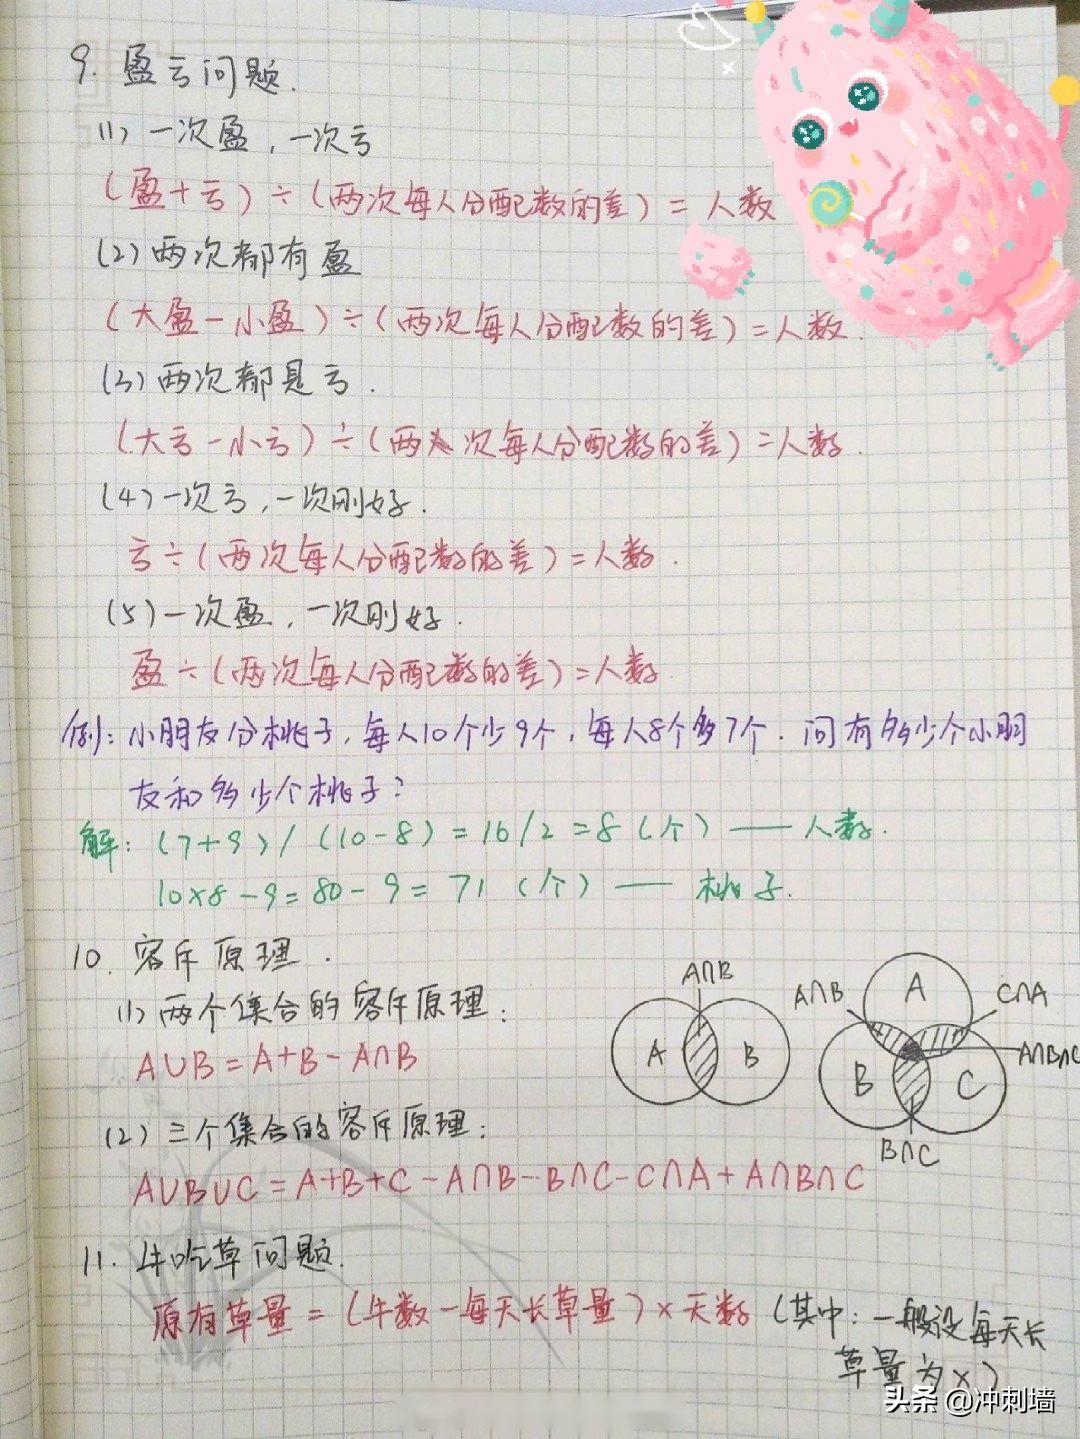 9. 盈亏问题.
(1) 一次盈，一次亏
(盈+亏)÷(两次每人分配数的差)=人数
(2) 两次都有盈
(大盈-小盈)÷(两次每人分配数的差)=人数.
(3) 两次都是亏.
(大亏-小亏)÷(两次每人分配数的差)=人数.
(4) 一次亏,一次刚好.
亏÷(两次每人分配数的差)=人数.
(5) 一次盈,一次刚好.
盈÷(两次每人分配数的差)=人数.
例：小朋友分桃子，每人10个少9个，每人8个多7个.问有多少个小朋
友和多少个桃子？
解：(7+9)/(10-8)=16/2=8(个)——人数.
10×8-9=80-9=71(个)——桃子.
10. 容斥原理.
(1) 两个集合的容斥原理：
A∪B=A+B-A∩B
A∩B
A B
A∩B A C∩A
B C A∩B∩C
B∩C
(2) 三个集合的容斥原理：
A∪B∪C=A+B+C-A∩B-B∩C-C∩A+A∩B∩C
11. 牛吃草问题.
原有草量=(牛数-每天长草量)×天数(其中：一般设每天长
草量为x)
头条 @冲刺墙